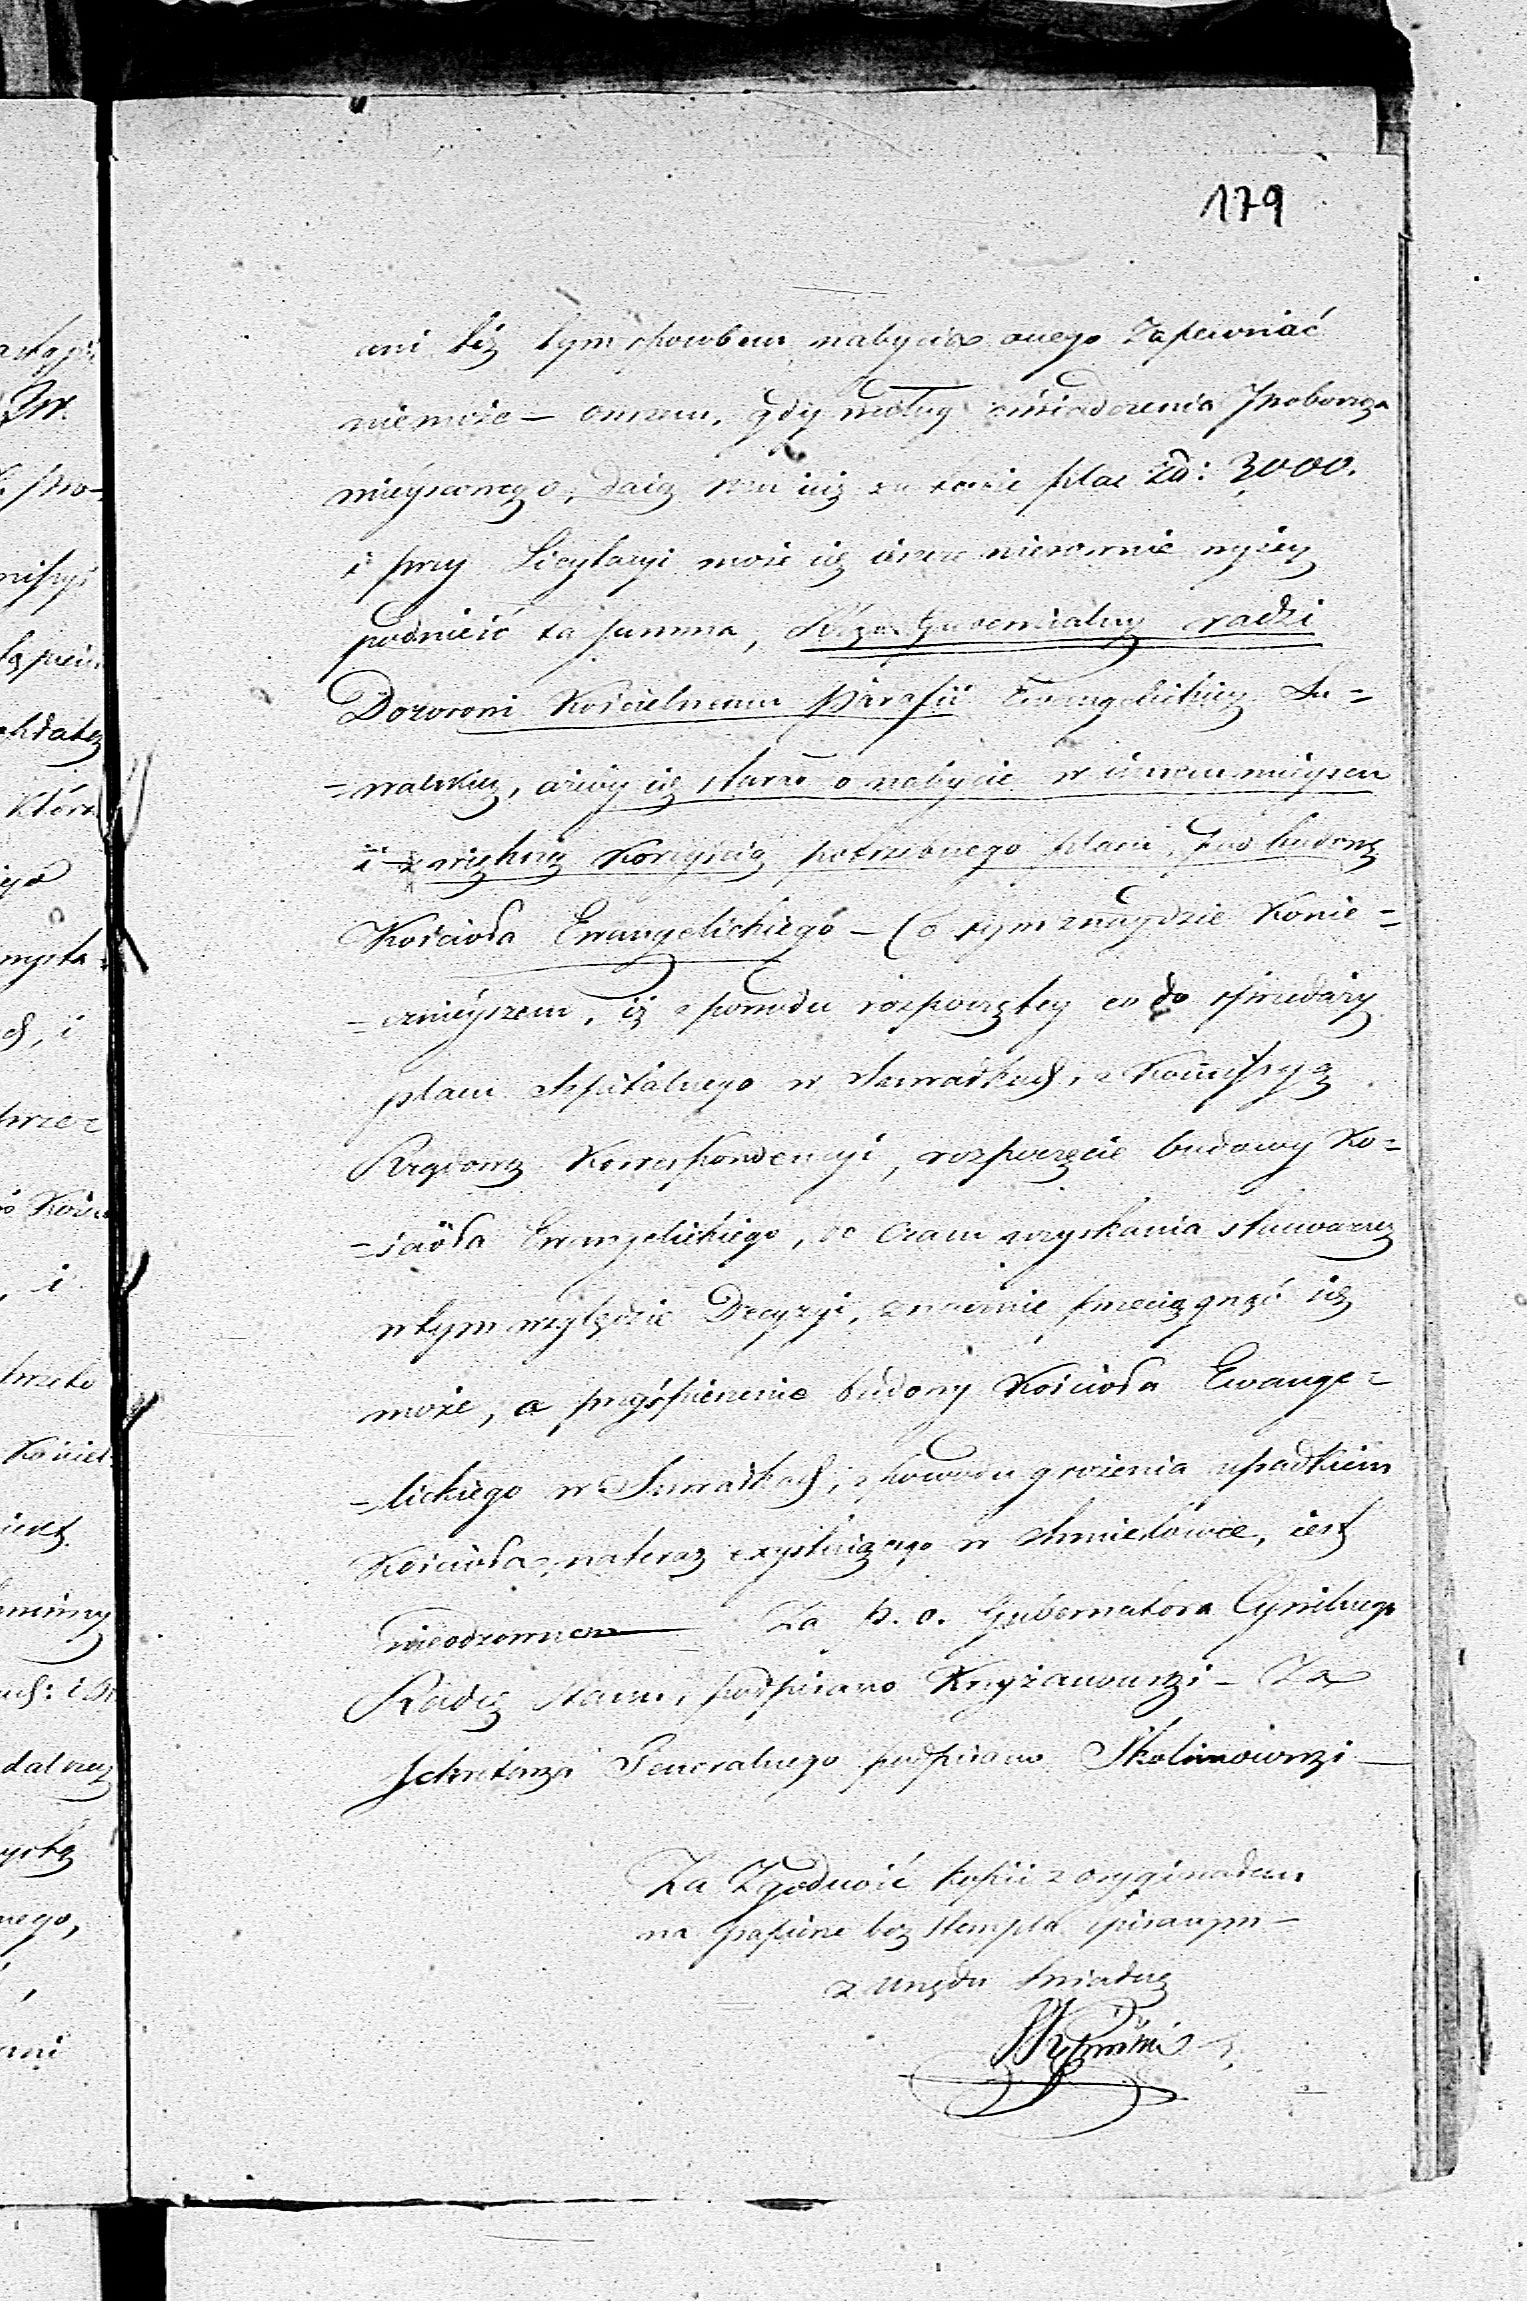 179
ani też tym sposobem nabycia onego zapewniać
nie może — owszem, gdy według oświadczenia Proboszcza
mieyscowego, daią mu iuż za takie plac Zł: 3000.
i przy Licytacyi może się ieszcze nierównie wyżey
podnieść ta summa, Rząd Gubernialny radzi
Dozorowi Kościelnemu Parafii Ewangelickiey Su=
=walskiey, ażeby się starał o nabycie w innem mieyscu
i z większą korzyścią potrzebnego placu, pod budowę
Kościoła Ewangelickiego — Co tym znaydzie Konie=
=cznieyszem, iż z powodu rozpoczętey co do sprzedaży
placu Szpitalnego w Suwałkach, z Kommissyą
Rządową Korrespondencyi, rozpoczęcie budowy Ko=
=ścioła Ewangelickiego, do czasu uzyskania stanowczey
w tym względzie Decyzyi, znacznie przeciągnąć się
może, a przyśpieszenie budowy Kościoła Ewange=
=lickiego w Suwałkach, z powodu grożenia upadkiem
Kościoła, na teraz exystuiącego w Chmielówce, iest
nieodzownem — Za p. o. Gubernatora Cywilnego
Radca Stanu, podpisano Krzyżanowski — Za
Sekretarza Generalnego podpisano Skolimowski —
Za Zgodność kopii z oryginałem
na papierze bez stempla spisanym —
z urzędu świadczę